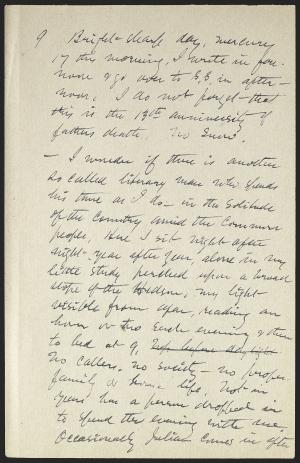 9 Bright sharp day, mercury
17 this morning, I write in fore-
noon & go over to S.S. in after-
noon. I do not forget that
this is the 13th anniversary of
fathers death. No snow.
– I wonder if there is another
so called literary man who spends
his time as I do – in the solitude
of the country amid the common
people. Here I sit night after
night – year after year, alone in my
little study perched upon a broad
slope of the Hudson, my light
visible from afar, reading an
hour or two each evening & then
to bed at 9, up before daylight.
No callers, no society – no proper
family or home life. Not in
years has a person dropped in
to spend the evening with me.
Occasionally Julian comes in after